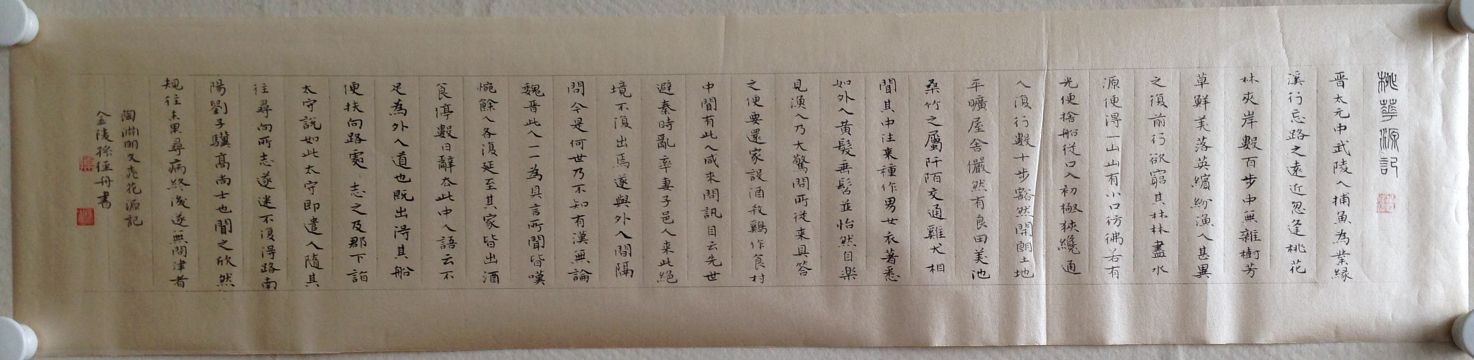 桃華源記
晉太元中武陵人捕魚為業緣
溪行忘路之遠近忽逢桃花
林夾岸數百步中無雜樹芳
草鮮美落英繽紛漁人甚異
之復前行欲窮其林林盡水
源便得一山山有小口彷彿若有
光便捨船從口入初極狹纔通
人復行數十步豁然開朗土地
平曠屋舍儼然有良田美池
桑竹之屬阡陌交通雞犬相
聞其中往來種作男女衣著悉
如外人黃髮垂髫並怡然自樂
見漁人乃大驚問所從來具答
之便要還家設酒殺雞作食村
中聞有此人咸來問訊自云先世
避秦時亂率妻子邑人來此絕
境不復出焉遂與外人間隔
問今是何世乃不知有漢無論
魏晉此人一一為具言所聞皆嘆
惋餘人各復延至其家皆出酒
食停數日辭去此中人語云不
足為外人道也既出得其船
便扶向路處處志之及郡下詣
太守說如此太守即遣人隨其
往尋向所志遂迷不復得路南
陽劉子驥高尚士也聞之欣然
規往未果尋病終後遂無問津者
陶淵明文桃花源記
金陵孫恆舟書